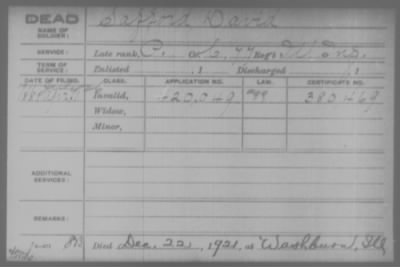 DEAD
NAME OF SOLDIER: Safford David
SERVICE: Late rank, Co. Reg't Ind.
TERM OF SERVICE: Enlisted , 1 Discharged , 1
DATE OF FILING. CLASS. APPLICATION NO. LAW. CERTIFICATE NO.
Invalid, 420,049 380469
Widow,
Minor,
ADDITIONAL SERVICES:
REMARKS:
Died Dec. 22, 1921, at Washburn, Ill